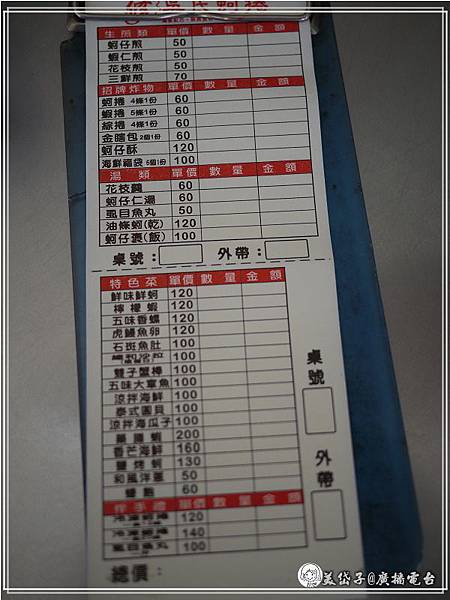 生煎類 單價 數量 金額
蚵仔煎 50
蝦仁煎 50
花枝煎 50
三鮮煎 70
招牌炸物 單價 數量 金額
蚵捲 4條1份 60
蝦捲 5條1份 60
綜捲 4條1份 60
金瞎包 2個1份 60
蚵仔酥 120
海鮮福袋 5個1份 100
湯類 單價 數量 金額
花枝羹 60
蚵仔仁湯 60
虱目魚丸 50
油條蚵(乾) 120
蚵仔(飯) 100
桌號： 外帶：
特色菜 單價 數量 金額
鮮味鮮蚵 120
檸檬蝦 120
五味香螺 120
虎鰻魚卵 120
石斑魚肚 100
100
雙子蟹棒 100
五味大章魚 100
涼拌海鮮 100
泰式圓貝 100
涼拌海瓜子 100
藥膳蝦 200
香芒海鮮 160
鹽烤蚵 130
和風洋蔥 50
60
桌號
外帶
伴手禮 單價 數量 金額
120
140
虱目魚丸 100
總價：
美岱子@廣播電台